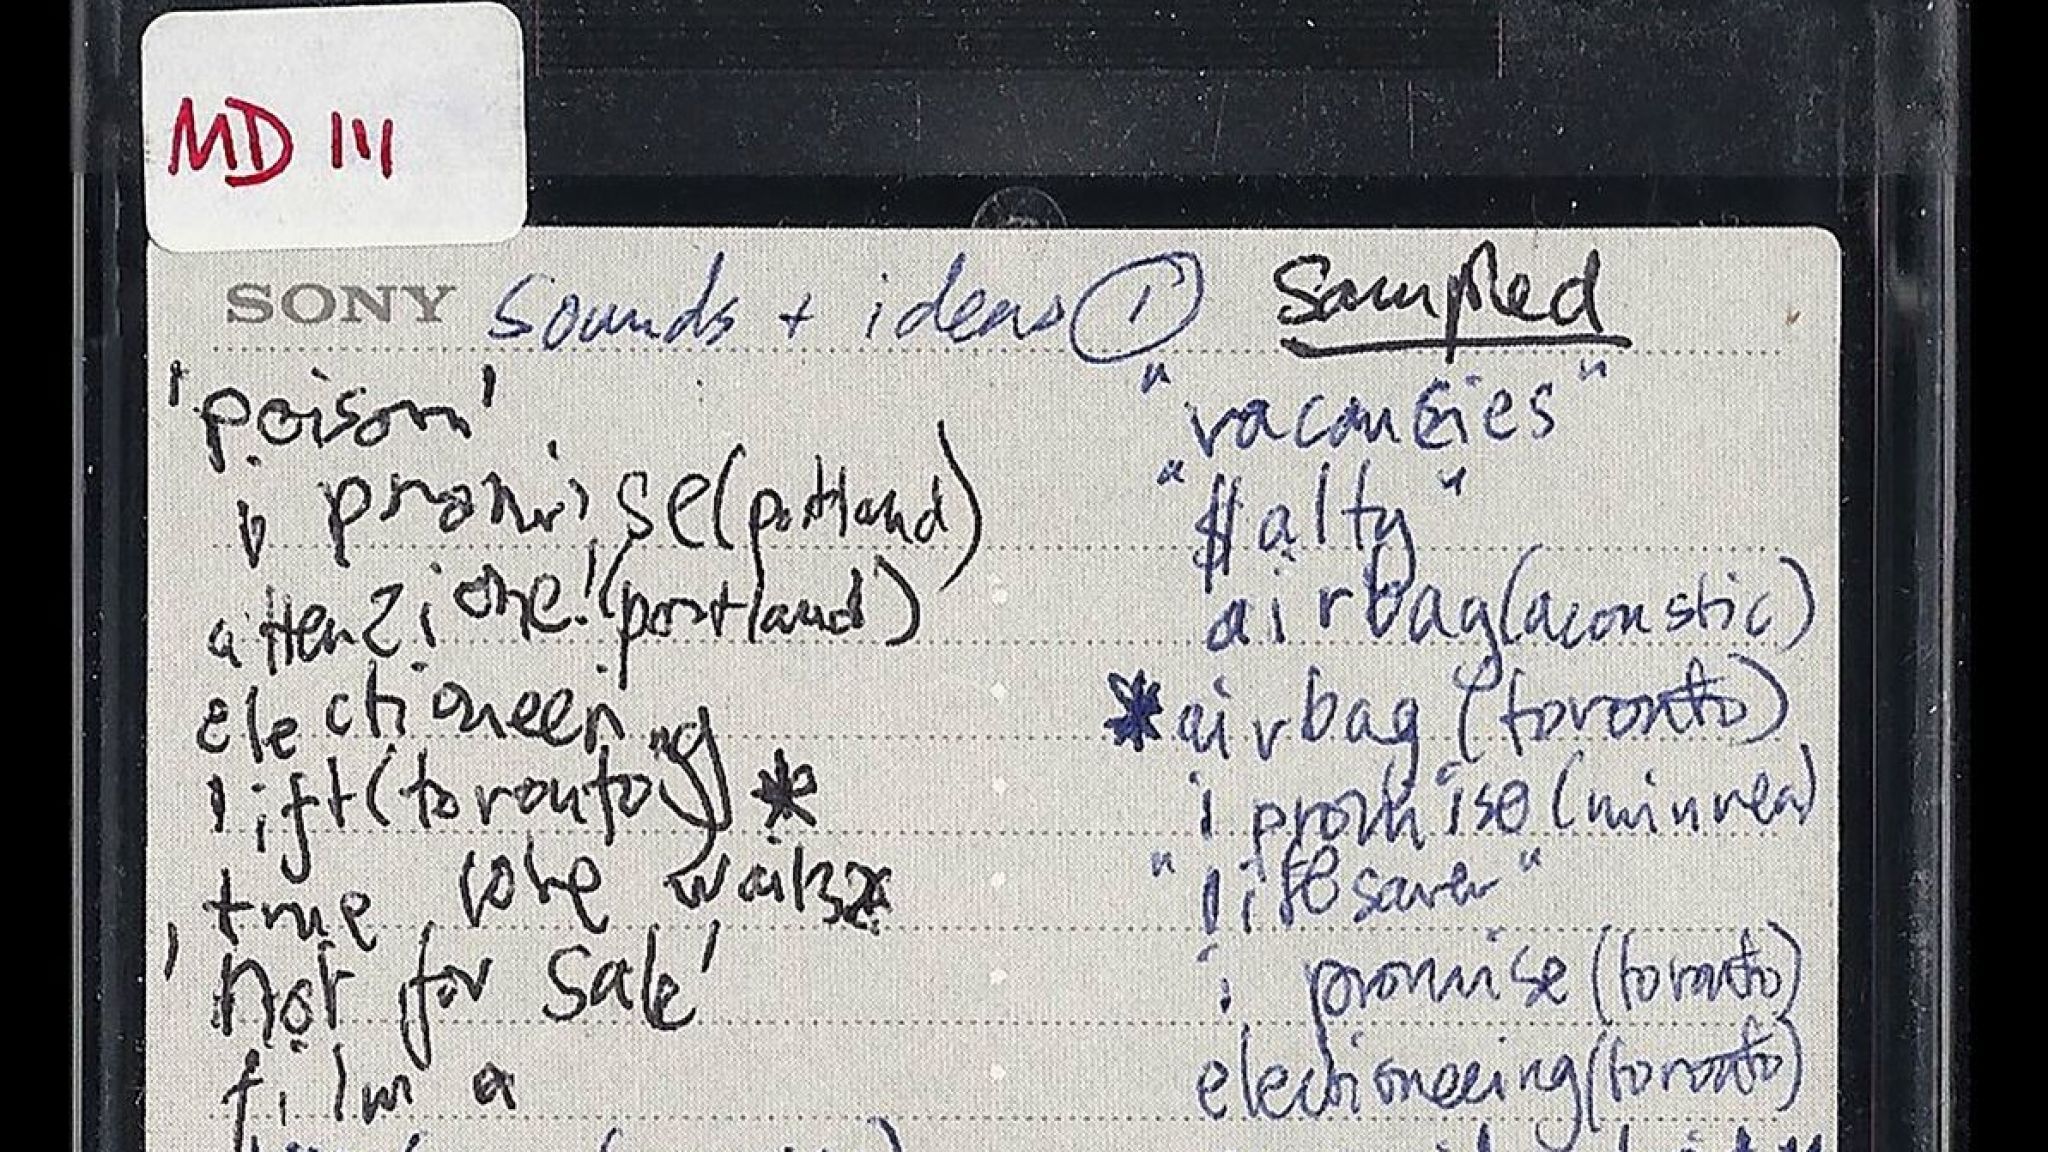 MD 111
SONY sounds + ideas 1 sampled
'poison'
i promise (portland)
attenzione! (portland)
electioneering
lift (toronto) *
true love waits
'not for sale'
film a
"vacancies"
airbag (acoustic)
* airbag (toronto)
i promise
"lifesaver"
i promise (toronto)
electioneering (toronto)